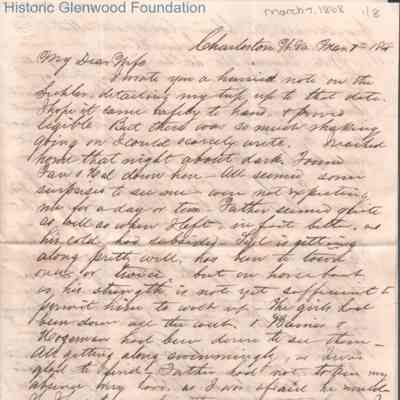 Historic Glenwood Foundation
March 7, 1868 1/8
Charleston W.Va. Mar 7th 186
My Dear Wife
I wrote you a hurried note on the
detailing my trip up to that date.
I hope it came safely to hand, & proved
legible. But there was so much shaking
going on I could scarcely write. I reached
home that night about dark. Found
& Hal down here. All seemed some
surprised to see me were not expecting
me for a day or two. Father seemed quite
as well as when I left, in fact better, as
his cold had subsided. is getting
along pretty well, has been to town
once or twice but on horse back
as his strength is not yet sufficient to
permit him to walk up. The girls had
been down all the week. &
had been down to see them
All getting along swimmingly, & was
glad to find Father had not to in my
absence very long as I was afraid he would